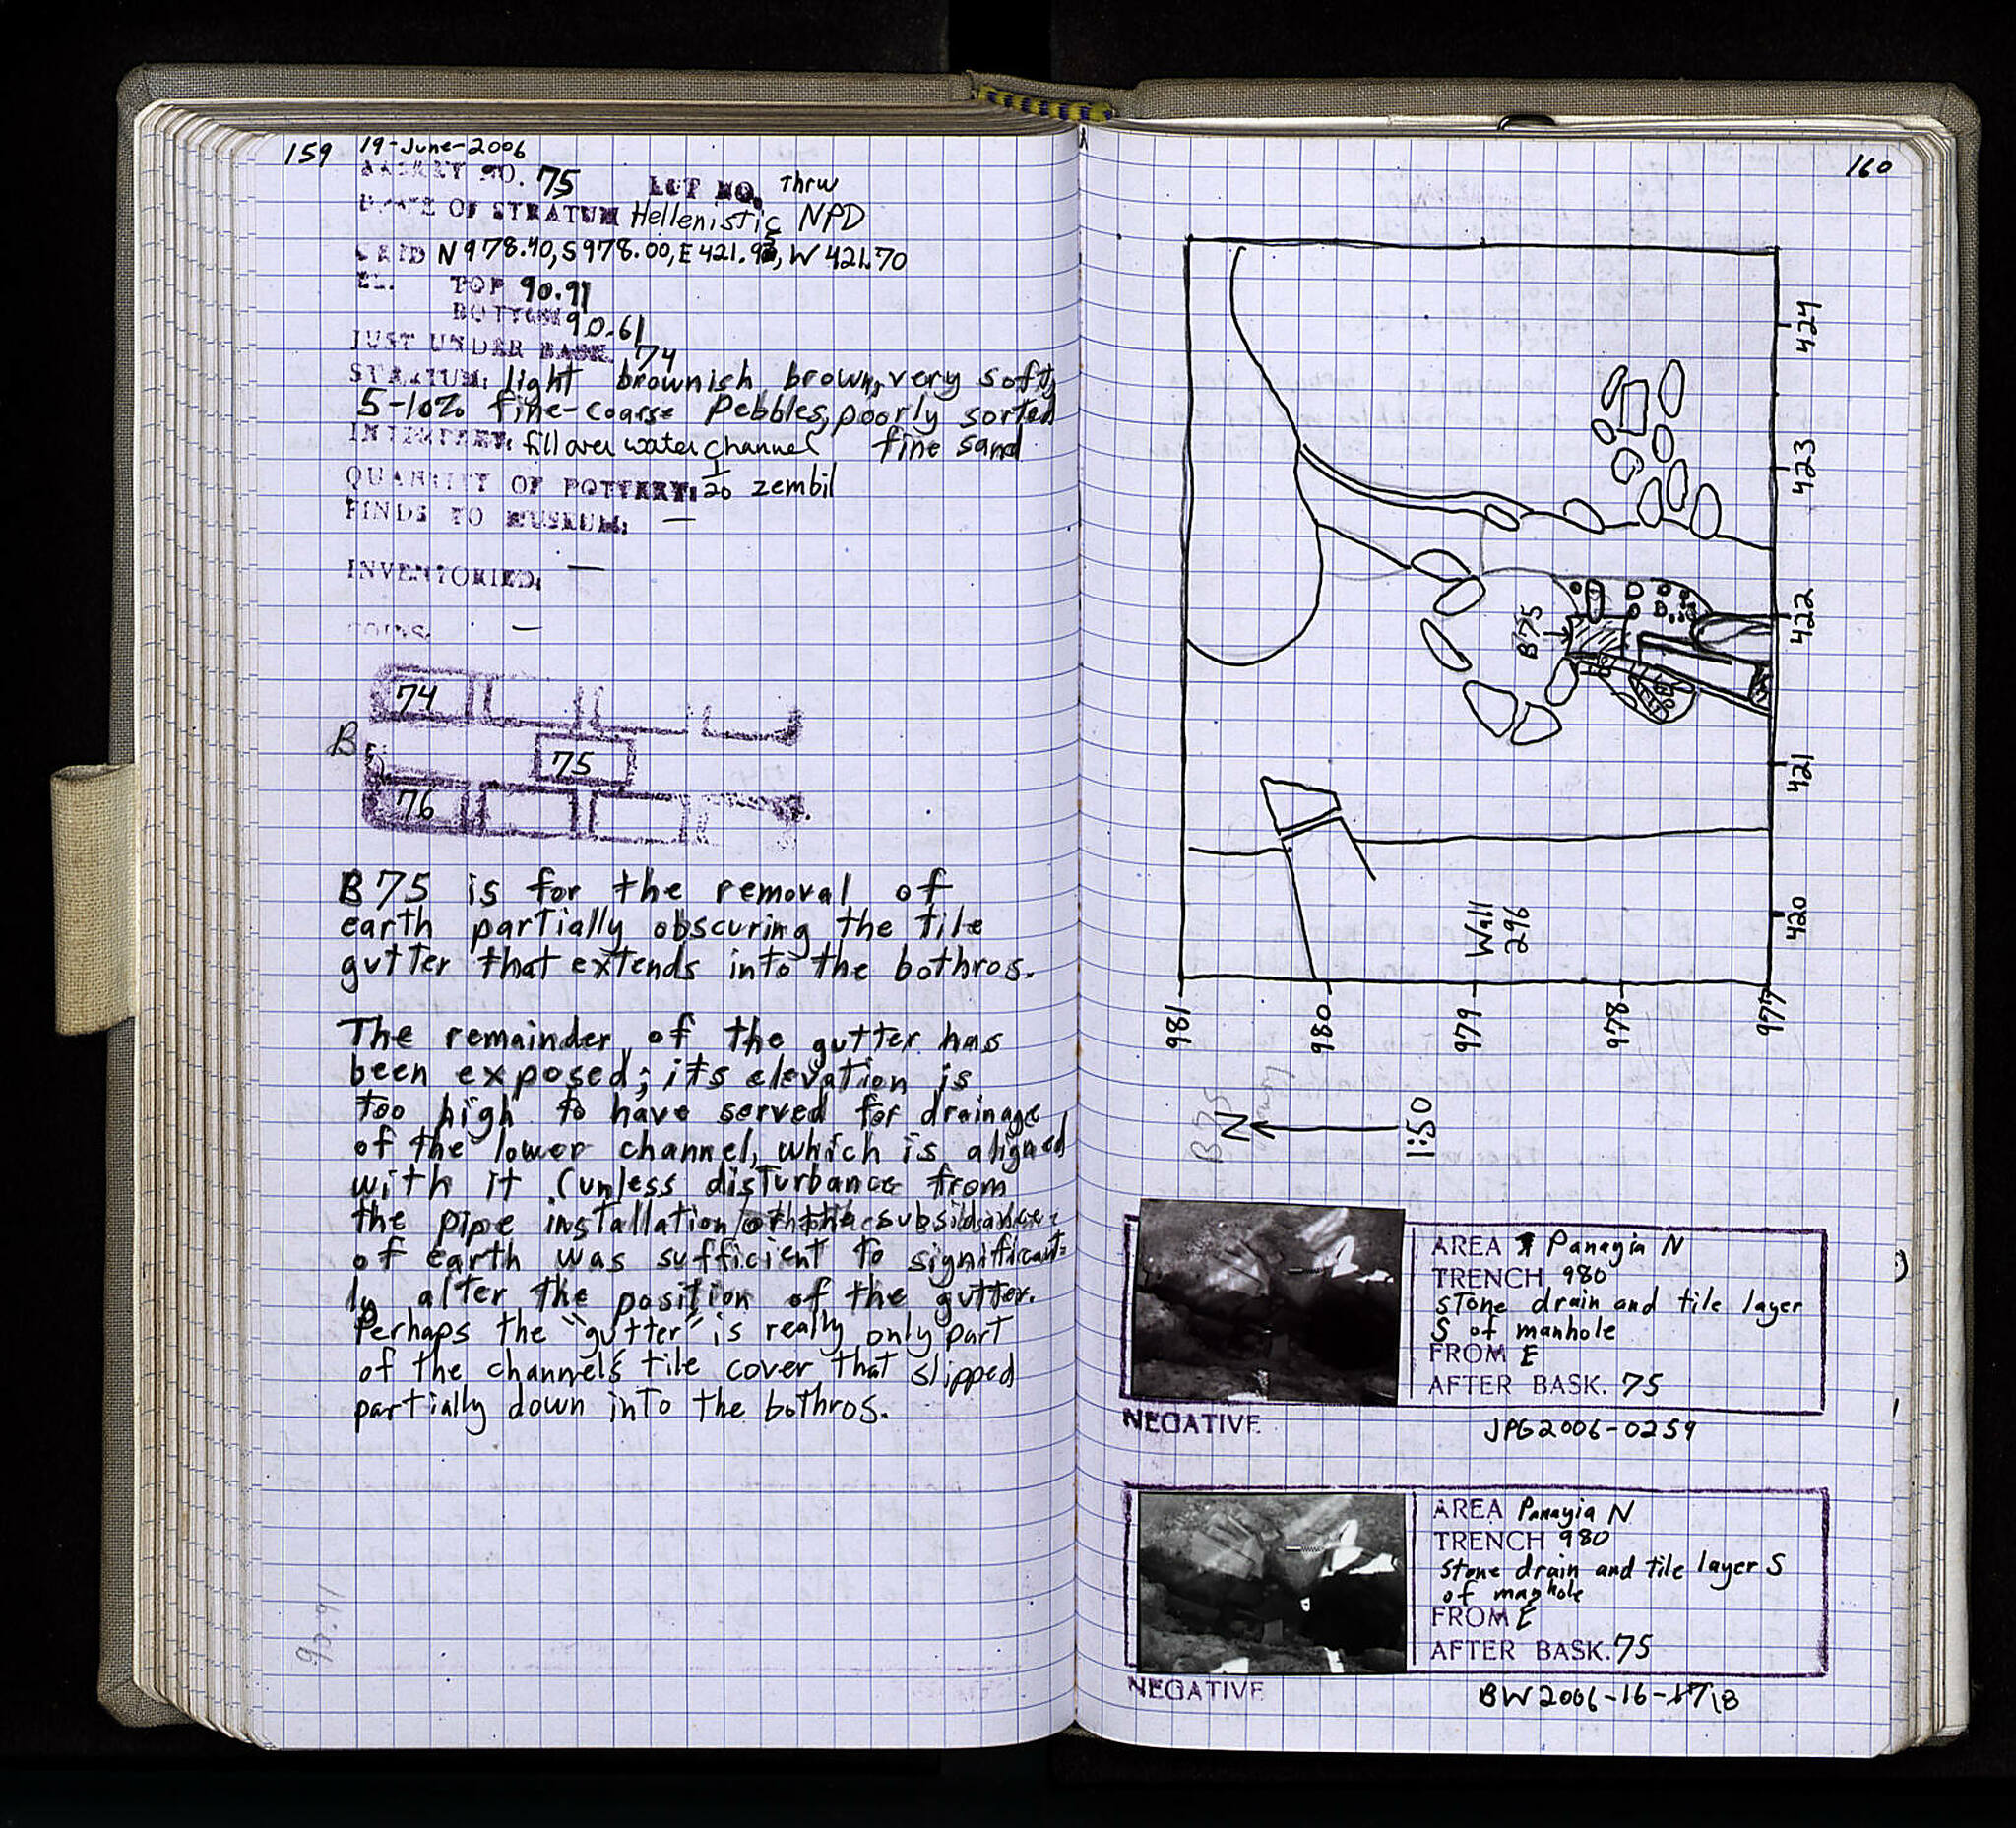 159 19-June-2006
BASKET NO. 75 LOT NO. Thrw
DATE OF STRATUM Hellenistic NPD
GRID N978.40, S978.00, E421.93, W421.70
EL. TOP 90.91
BOTTOM 90.61
JUST UNDER BASK. 74
STRATUM: light brownish brown, very soft,
5-10% fine-coarse Pebbles, poorly sorted
INTERPRET: fill over water channel fine sand
QUANTITY OF POTTERY: 1/20 zembil
FINDS TO MUSEUM: —
INVENTORIED: —
COINS. —
74
B
75
76
B75 is for the removal of
earth partially obscuring the tile
gutter that extends into the bothros.
The remainder of the gutter has
been exposed; its elevation is
too high to have served for drainage
of the lower channel, which is aligned
with it (unless disturbance from
the pipe installation or the subsidance
of earth was sufficient to significant-
ly alter the position of the gutter.
Perhaps the "gutter" is really only part
of the channel's tile cover that slipped
partially down into the bothros.
93.91
160
424
423
422
421
420
B75
Wall
296
981
980
979
978
977
B75
N
1:50
AREA Panagia N
TRENCH 980
stone drain and tile layer
S of manhole
FROM E
AFTER BASK. 75
NEGATIVE
JPG2006-0259
AREA Panayia N
TRENCH 980
Stone drain and tile layer S
of manhole
FROM E
AFTER BASK. 75
NEGATIVE
BW2006-16-17\8